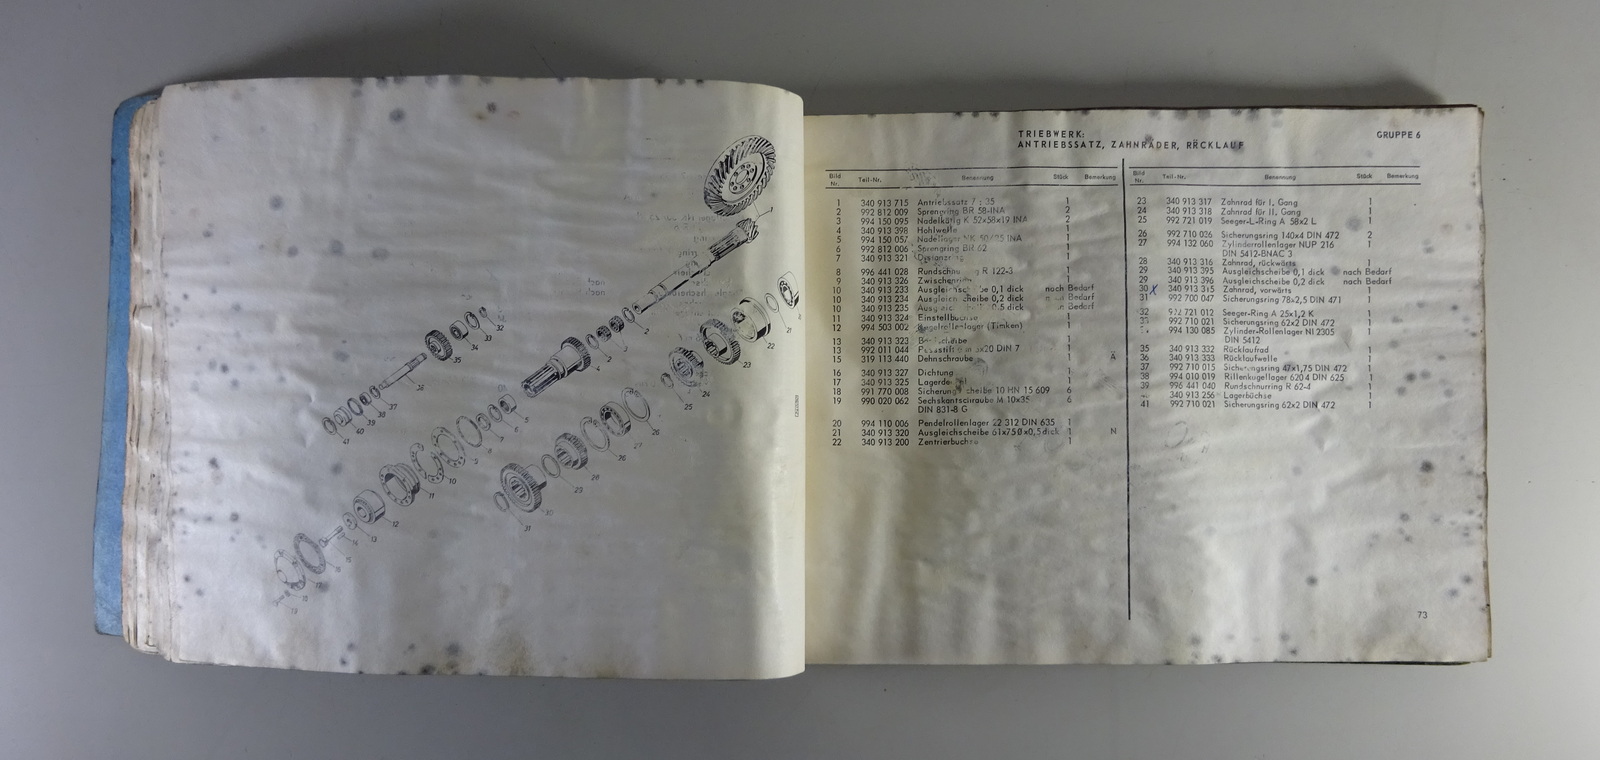 TRIEBWERK:
ANTRIEBSSATZ, ZAHNRÄDER, RÜCKLAUF
GRUPPE 6
Bild Nr. Teil-Nr. Benennung Stück Bemerkung
1 340 913 715 Antriebssatz 7 : 35 1
2 992 812 009 Sprengring BR 58-INA 2
3 994 150 095 Nadelkäfig K 52x58x19 INA 2
4 340 913 398 Hohlwelle 1
5 994 150 057 Nadellager 50/25 INA 1
6 992 812 006 Sprengring BR 62 1
7 340 913 321 1
8 996 441 028 R 122-3 1
9 340 913 326 Zwischenring 1
10 340 913 233 Ausgleichscheibe 0,1 dick nach Bedarf
10 340 913 234 Ausgleichscheibe 0,2 dick nach Bedarf
10 340 913 235 Ausgleichscheibe 0,5 dick nach Bedarf
11 340 913 324 Einstellbuchse 1
12 994 503 002 Kegelrollenlager (Timken) 1
13 340 913 323 1
13 992 011 044 8x20 DIN 7 1
15 319 113 440 Dehnschraube 1 Ä
16 340 913 327 Dichtung 1
17 340 913 325 1
18 991 770 008 Sicherungsscheibe 10 HN 15 609 6
19 990 020 062 Sechskantschraube M 10x35 6
DIN 831-8 G
20 994 110 006 Pendelrollenlager 22 312 DIN 635 1
21 340 913 320 Ausgleichscheibe 61x75Øx0,5dick 1 N
22 340 913 200 Zentrierbuchse 1
Bild Nr. Teil-Nr. Benennung Stück Bemerkung
23 340 913 317 Zahnrad für I. Gang 1
24 340 913 318 Zahnrad für II. Gang 1
25 992 721 019 Seeger-L-Ring A 58x2 L 1
26 992 710 026 Sicherungsring 140x4 DIN 472 2
27 994 132 060 Zylinderrollenlager NUP 216 1
DIN 5412-BNAC 3
28 340 913 316 Zahnrad, rückwärts 1
29 340 913 395 Ausgleichscheibe 0,1 dick nach Bedarf
29 340 913 396 Ausgleichscheibe 0,2 dick nach Bedarf
30 X 340 913 315 Zahnrad, vorwärts 1
31 992 700 047 Sicherungsring 78x2,5 DIN 471 1
32 992 721 012 Seeger-Ring A 25x1,2 K 1
33 992 710 021 Sicherungsring 62x2 DIN 472 1
994 130 085 Zylinder-Rollenlager NJ 2305 1
DIN 5412
35 340 913 332 Rücklaufrad 1
36 340 913 333 Rücklaufwelle 1
37 992 710 015 Sicherungsring 47x1,75 DIN 472 1
38 994 010 019 Rillenkugellager 6204 DIN 625 1
39 996 441 040 Rundschnurring R 62-4 1
340 913 256 Lagerbüchse 1
41 992 710 021 Sicherungsring 62x2 DIN 472 1
73